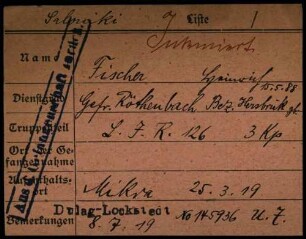 Liste
Interniert
Name Fischer Heinrich
15.5.88
Dienstgrad Gefr. Röthenbach Bez. Hersbruk
Truppenteil L. I. R. 126 3 Kp
Ort der Gefangennahme
Aufenthaltsort Mikra 25-3.19
Dulag-Lockstedt No 145936 U. 7.
Bemerkungen 8. 7. 19
Aus